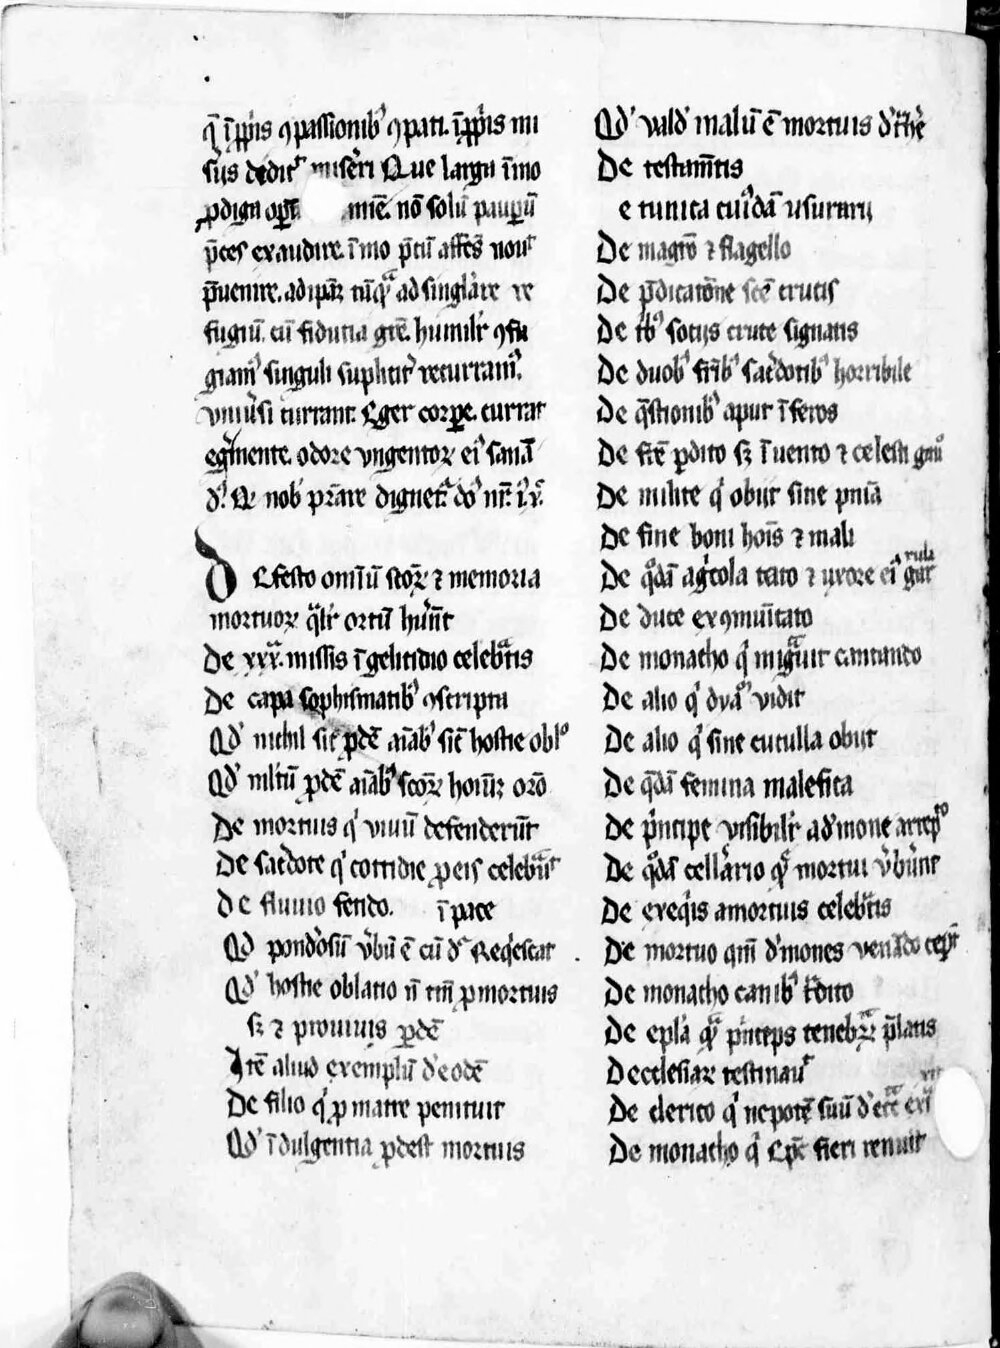 q̄ ī ꝓpͥis ꝯpassionibꝰ ꝯpati. ī ꝓpͥis mi
sͥus dedit᷑ miseri Que larga īmo
ꝓdiga mie. nō solū pauꝑū
p̄ces exaudire. īmo p̄cū affc̄s nouit
p̄uenire. ad ip̄aꝫ tāqᷓ ad singlare re
fugiū. cū fiducia gͣcē. humilit᷑ ꝯfu
giamꝰ singuli supliciter recurramꝰ.
vniuͥsi currant. Eger corꝑe. currat
eg̾ mente. odore vngentoꝝ eiꝰ sanād
dꝰ. Qd nob p̄stare dignet᷑ dn̄s nr̄ i. x.
De festo omīu scōꝝ ⁊ memoria
mortuoꝝ qͣlit᷑ ortū hūͥnt
De xxx. missis ī gelicidio celebᷓtis
De capa sophismatibꝰ ꝯscripta
Qd' nichil sic ꝓdē aīabꝰ sic hostie oblͦ
Qd' mltū ꝓdē aīabꝰ scōꝝ hoīuꝫ orō
De mortuis qͥ viuū defenderūt
De sacͥdote qͥ cottidie ꝓ eis celebᷓuit
De fluuio fendo. ī pace
Qd ponderosū v̾bū ē cū dr̄ Reqͥescat
Qd' hostie oblatio nō tm̄ ꝓ mortuis
sꝫ ⁊ pro viuis ꝓdē
Itē aliud exemplū de eodē
De filio qͥ ꝓ matre penituit
Qd' īdulgentia ꝓdest mortuis
Qd' valdͤ malū ē mortuis
De testam̄tis
e tunica cuiꝰdā vsurarij
De magrō ⁊ flagello
De p̄dicatōne scē crucis
De tͥbꝰ socijs cruce signatis
De duobꝰ frībꝰ sacͥdotibꝰ horribile
De q̄stionibꝰ aput īferos
De frē ꝑdito sꝫ īuento ⁊ celesti
De milite qͥ obijt sine pnīa
De fine boni hoīs ⁊ mali
De qͦdā agͥcola tato ⁊ vxore eiꝰ
De duce exꝯmuīcato
De monacho qͥ migᷓuit cantando
De alio qͥ dyaͦ vidit
De alio qͥ sine cuculla obijt
De qᷓdā femina malefica
De pͥncipe visibilit᷑ a dͤmone arrepͭͦ
De qͦdā cellario qͥ mortui v̾bͥaunt
De exeqͥis a mortuis celebᷓtis
De mortuo qm̄ dͤmones venādo
De monacho canibꝰ tͣdito
De epla qᷓ pͥnceps tenebraꝝ p̄latis
De ecclesiaꝝ
De clerico qͥ nepotē suū
De monacho qͥ Ep̄c fieri renuit